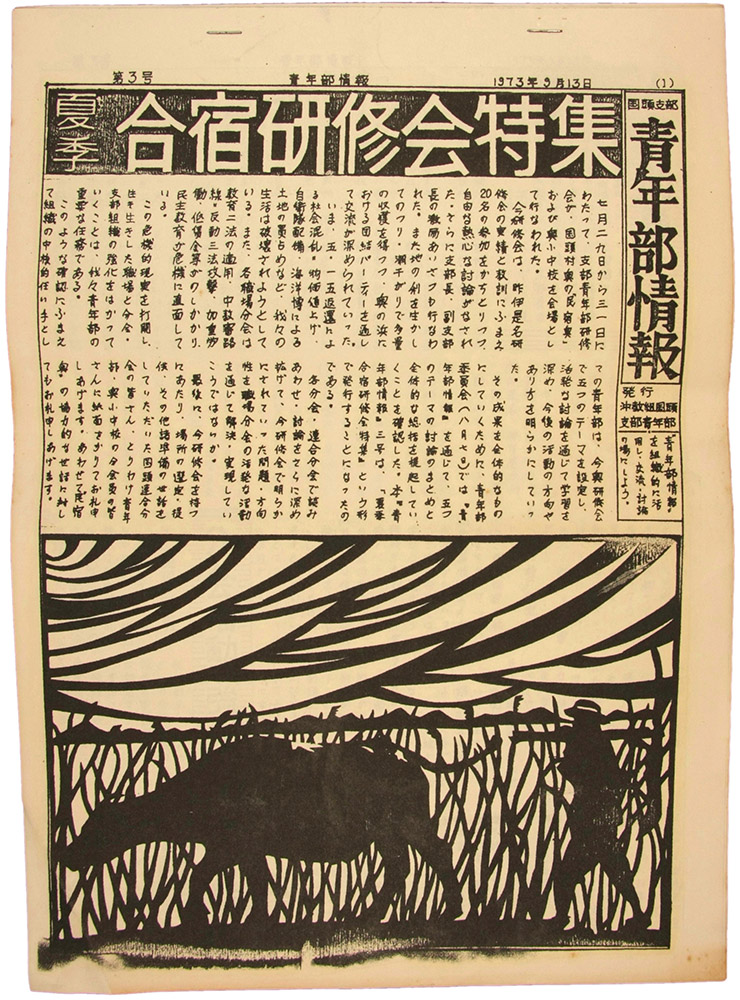 第3号
青年部情報
1973年9月13日
(1)
国頭支部
青年部情報
発行
沖教組国頭
支部青年部
"青年部情報"
を組織的に活
用し、交流・討論
の場にしよう。
夏季
合宿研修会特集
七月二九日から三一日に
わたって、支部青年部研修
会が、国頭村奥の民宿"奥"
および奥小中校を会場とし
て行なわれた。
今研修会は、昨伊是名研
修会の実績と教訓にふまえ
20名の参加をかちとりつつ、
自由な熱心な討論がなされ
た。さらに支部長、副支部
長の激励あいさつも行なわ
れた。また地の利を生かし
てのツリ・潮干がりで多量
の収穫を得つつ、奥の浜に
おける団結パーティーを通し
て交流が深められていった。
いま、五・一五返還によ
る社会混乱=物価値上げ、
自衛隊配備、海洋博による
土地の買占めなど、我々の
生活は破壊されようとして
いる。また、各職場分会は
教育二法の適用、中教審路
線・反動三法攻撃、加重労
働、低賃金等がのしかかり、
民主教育が危機に直面して
いる。
この危機的現実を打開し、
生き生きした職場と分会・
支部組織の強化をはかって
いくことは、我々青年部の
重要な任務である。
このような確認にふまえ
て組織の中核的任い手とし
ての青年部は、今奥研修会
で五つのテーマを設定し、
活発な討論を通じて学習を
深め、今後の活動の方向や
あり方を明らかにしていっ
た。
その成果を全体的なもの
にしていくために、青年部
委員会(八月七日)では、"青
年部情報"を通じて、五つ
のテーマの討論のまとめと
全体的な総括を提起してい
くことを確認した。本"青
年部情報"三号は、"夏季
合宿研修会特集"という形
で発行することになったの
である。
各分会、連合分会で読み
あわせ、討論をさらに深め
拡げて、今研修会で明らか
にされていった問題・方向
性を職場分会の活発な活動
を通じて解決、実現してい
こうではないか。
最後に、今研修会を持つ
にあたり、場所の選定、提
供、その他諸準備の世話を
していただいた国頭連合分
会の皆さん、とりわけ青年
部、奥小中校の分会員の皆
さんに紙面をかりてお礼申
しあげます。あわせて民宿
"奥"の協力的な世話に対し
てもお礼申しあげます。